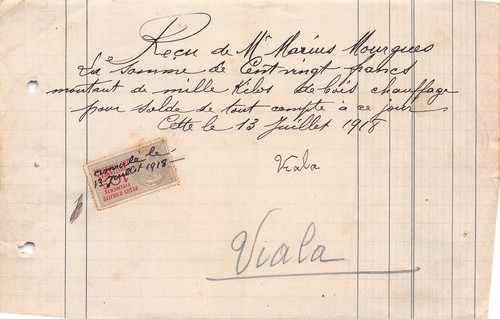 Reçu de Mr Marius Mourgues
La somme de Cent vingt francs
montant de mille Kilos de bois chauffage
pour solde de tout compte à ce jour
Cette le 13 Juillet 1918
Viala
annulé le
13 Juillet 1918
Viala